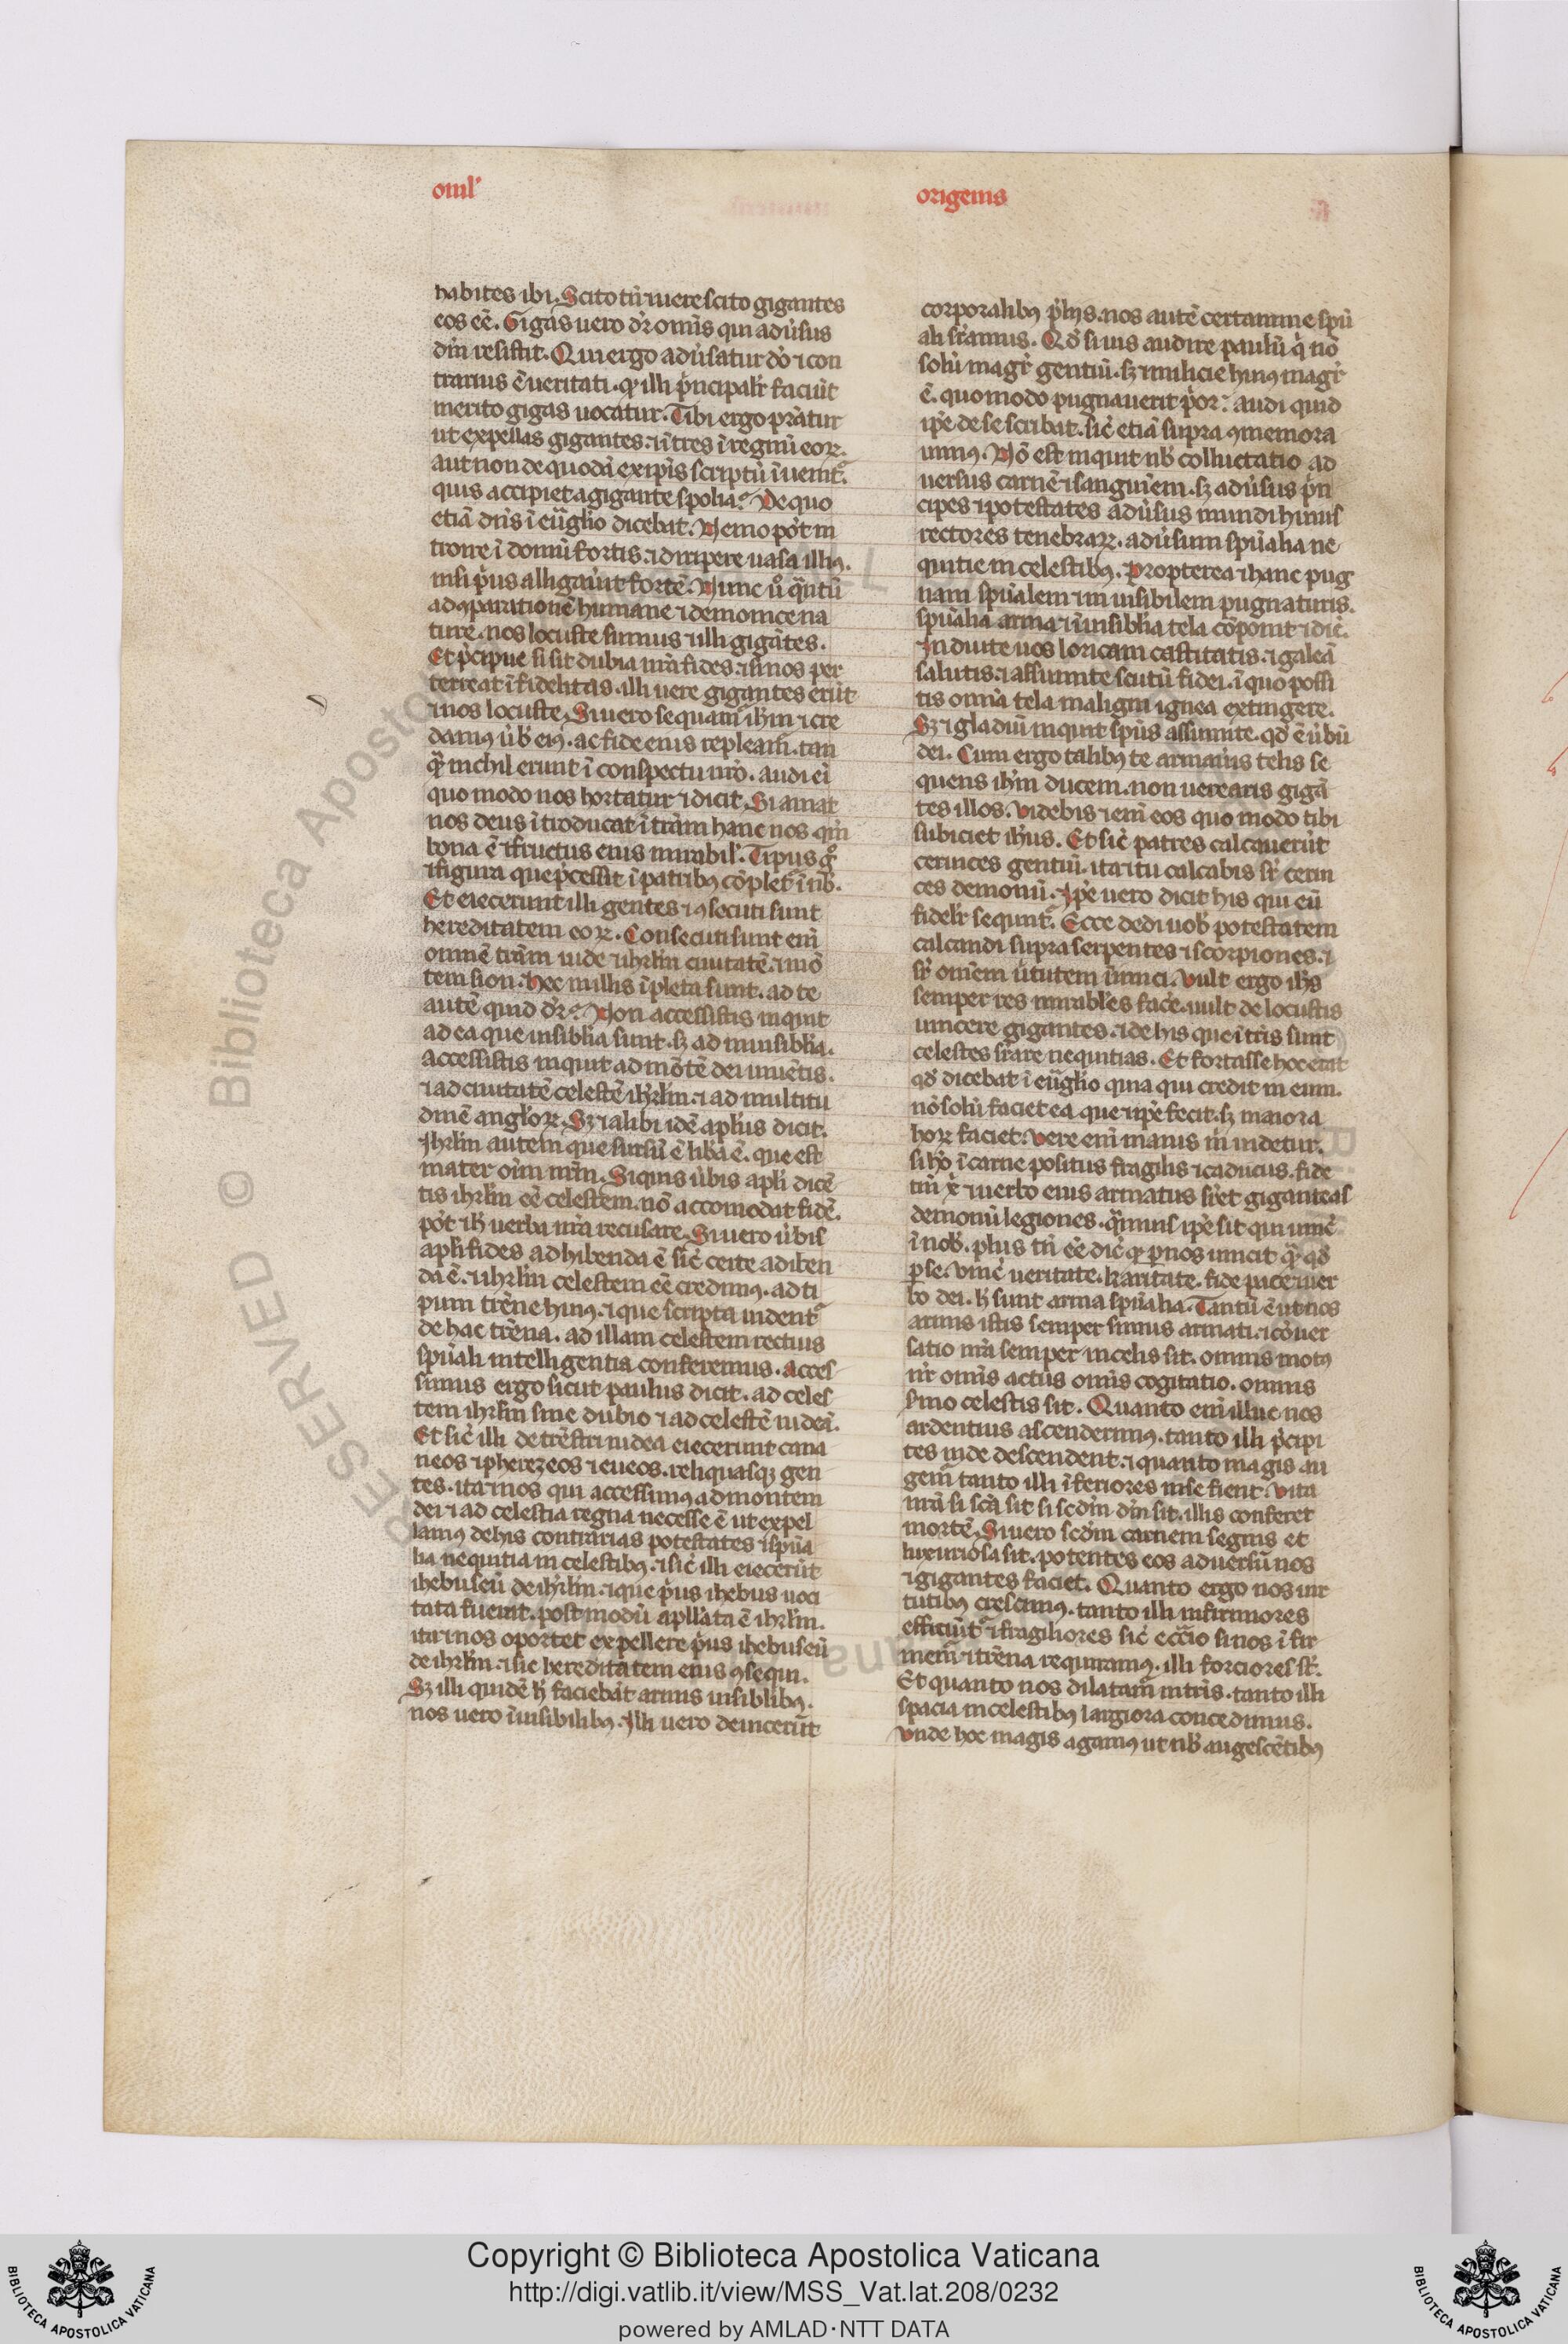 omł'
origenis
habites ibi. Scito tñ ⁊ uere scito gigantes
eos eē. Gigas uero dr̄ omĩs qui adũsus
dñi resistit. Qui ergo adũsatur dō ⁊ con
trarius ē ueritati. qͥ illi p̃ncipalr̃ faciũt
merito gigas uocatur. Tibi ergo pr̃atur
ut expellas gigantes. ⁊ ĩtres ĩ regnũ eoꝝ.
aut non de quodã ex ip̃is scriptũ ĩuenit̃.
quis accipiet a gigante spolia? De quo
etiã dñs ĩ eug̃lio dicebat. Nemo põt in
troire ĩ domũ fortis. ⁊ diripere uasa illiꝰ.
nisi p̃us alligauũt fortẽ. Nunc ũ q̃ntũ
ad ꝯparationẽ humane ⁊ demonice na
ture. nos locuste sumus ⁊ illi gigãtes.
Et p̃cipue si sit dubia nr̃a fides. ⁊ si nos per
terreat ĩfidelitas. illi uere gigantes erũt
⁊ nos locuste. Si uero sequam̃ ih̃m ⁊ cre
damꝰ ũb̃ eiꝰ. ac fide eius repleam̃. tan
q̃ nichil erunt ĩ conspectu nr̃o. audi ei
quo modo nos hortatur ⁊ dicit. Si amat
nos deus ĩtroducat ĩ tr̃am hanc nos qm̃
bona ē ⁊ fructus eius mirabil'. Tipus g̃
⁊ figura que p̃cessit ĩ patribꝰ cõplet̃ ĩ nob̃.
Et eiecerunt illi gentes ⁊ ꝯsecuti sunt
hereditatem eoꝝ. Consecuti sunt em̃
omnẽ tr̃am iude ⁊ ihrl̃m ciuitatẽ. ⁊ mõ
tem sion. Hec in illis ĩpleta sunt. ad te
autẽ quid dr̄? Non accessistis inquit
ad ea que uisiblia sunt. sꝫ ad inuisiblia.
Accessistis inquit ad mõtẽ dei uiuẽtis.
⁊ ad ciuitatẽ celestẽ ihrl̃m. ⁊ ad multitu
dinẽ angl̃oꝝ. Sꝫ ⁊ alibi idẽ apl̃us dicit.
Ihrl̃m autem que sursũ ē lib̃a ē. que est
mater oĩm nr̃m. Si quis ũbis apl̃i dicẽ
tis ihrl̃m eē celestem. nõ accomodat fidẽ.
põt ⁊ h̃ uerba nr̃a recusare. Si uero ũbis
apl̃i fides adhibenda ē sic̃ certe adiben
da ē. ⁊ ihrl̃m celestem eē credimꝰ. ad ti
pum tr̃ene huiꝰ. ⁊ que scripta uident̃
de hac tr̃ena. ad illam celestem rectius
spũali intelligentia conferemus. Acces
simus ergo sicut paulus dicit. ad celes
tem ihrl̃m sine dubio ⁊ ad celestẽ iudeã.
Et sic̃ illi de trẽstri iudea eiecerunt cana
neos ⁊ pherezeos ⁊ eueos. reliquasqꝫ gen
tes. ita ⁊ nos qui accessimꝰ ad montem
dei ⁊ ad celestia regna necesse ē ut expel
lamꝰ dehis contrarias potestates ⁊ spũa
lia nequitia in celestibꝰ. ⁊ sic̃ illi eiecerũt
ihebuseũ de ihrl̃m. ⁊ que p̃us ihebus uoci
tata fuerat. post modũ apll̃ata ē ihrl̃m.
ita ⁊ nos oportet expellere p̃us ihebuseũ
de ihrl̃m. ⁊ sic hereditatem eius ꝯsequi.
Sꝫ illi quidẽ h̃ faciebãt armis uisiblibꝰ.
nos uero ĩuisibilibꝰ. Illi uero deuicerũt
corporalibꝰ p̃liis. nos autẽ certamine spũ
ali sr̃amus. Qd̃ si uis audire paulũ q̃ nõ
solũ magr̃ gentiũ. sꝫ ⁊ milicie huiꝰ magr̃
ē. quomodo pugnauerit p̃or: audi quid
ip̃e de se scribat. sic̃ etiã supra ꝯmemora
uimꝰ. Nõ est inquit nob̃ colluctatio ad
uersus carnẽ ⁊ sanguinem. sꝫ adũsus p̃n
cipes ⁊ potestates adũsus mundi huius
rectores tenebraꝝ. adũsum spũalia ne
quitie in celestibꝰ. Propterea ⁊ hanc pug
nam spũalem ⁊ inuisibilem pugnaturis.
spũalia arma ⁊ ĩuisiblia tela cõponit ⁊ dic̃.
Induite uos loricam castitatis. ⁊ galeã
salutis. ⁊ assumite scutũ fidei. ĩ quo possi
tis omĩa tela maligni ignea extingere.
Sꝫ ⁊ gladiũ inquit spũs assumite. qd̃ ē ũbũ
dei. Cum ergo talibꝰ te armatus telis se
quens ih̃m ducem. non uerearis gigã
tes illos. Videbis ⁊ em̃ eos quo modo tibi
subiciet ih̃us. Et sic̃ patres calcauerũt
ceruices gentiũ. ita ⁊ tu calcabis sr̃ cerui
ces demoniũ. Ip̃e uero dicit his qui eũ
fidelr̃ sequnt̃. Ecce dedi uob̃ potestatem
calcandi supra serpentes ⁊ scorpiones. ⁊
sr̃ omẽm ũtutem ĩnimici. Vult ergo ih̃s
semper res mirabl̃es fac̃e. uult de locustis
uincere gigantes. ⁊ de his que ĩ tr̃is sunt
celestes sr̃are nequitias. Et fortasse hoc erat
qd̃ dicebat ĩ eug̃lio quia qui credit in eum.
nõ solũ faciet ea que ⁊ ip̃e fecit. sꝫ maiora
hoꝝ faciet. Vere em̃ maius m̃ uidetur.
si hõ ĩ carne positus fragilis ⁊ caducus. fide
tm̃ x̃ ⁊ uerbo eius armatus sr̃et giganteas
demonũ legiones. q̃muis ip̃e sit qui uinc̃
ĩ nob̃. plus tñ eẽ dic̃ qͥ ꝑ nos uincit q̃ qd̃
ꝑ se. Vinc̃ ueritate. karitate. fide pace uer
bo dei. h̃ sunt arma spũalia. Tantũ ē ut nos
armis istis semper simus armati. ⁊ cõuer
satio nr̃a semper in celis sit. omnis motꝰ
nr̃ omĩs actus omĩs cogitatio. omnis
s̃mo celestis sit. Quanto em̃ illuc nos
ardentius ascenderimꝰ. tanto illi p̃cipi
tes inde descendent. ⁊ quanto magis au
gem̃ tanto illi ĩferiores nise fient. Vita
nr̃a si sc̃a sit si scd̃m dñm sit. illis conferet
mortẽ. Si uero scd̃m carnem segnis et
luxuriosa sit. potentes eos aduersũ nos
⁊ gigantes faciet. Quanto ergo nos uir
tutibꝰ crescimꝰ. tanto illi infirmiores
efficiũt̃ ⁊ fragiliores sic̃ ecc̃rio si nos ĩfir
mem̃ ⁊ tr̃ena requiramꝰ. illi forciores st̃.
Et quanto nos dilatam̃ in tr̃is. tanto illi
spacia in celestibꝰ largiora concedimus.
Vnde hoc magis agamꝰ ut nob̃ augescẽtibꝰ
RESERVED © Biblioteca Aposto
Copyright © Biblioteca Apostolica Vaticana
http://digi.vatlib.it/view/MSS_Vat.lat.208/0232
powered by AMLAD·NTT DATA
BIBLIOTECA APOSTOLICA VATICANA
BIBLIOTECA APOSTOLICA VATICANA